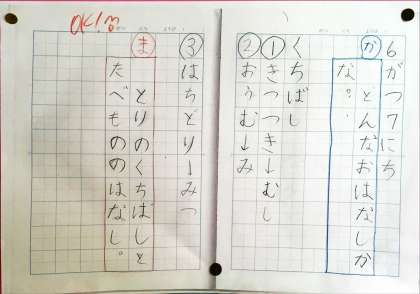 6がつ7にち
か
とんなおはなしか
な。
くちばし
①きつつき→むし
②おうむ→み
③はちどり→みつ
ま
とりのくちばしと
たべもののはなし。
OK!